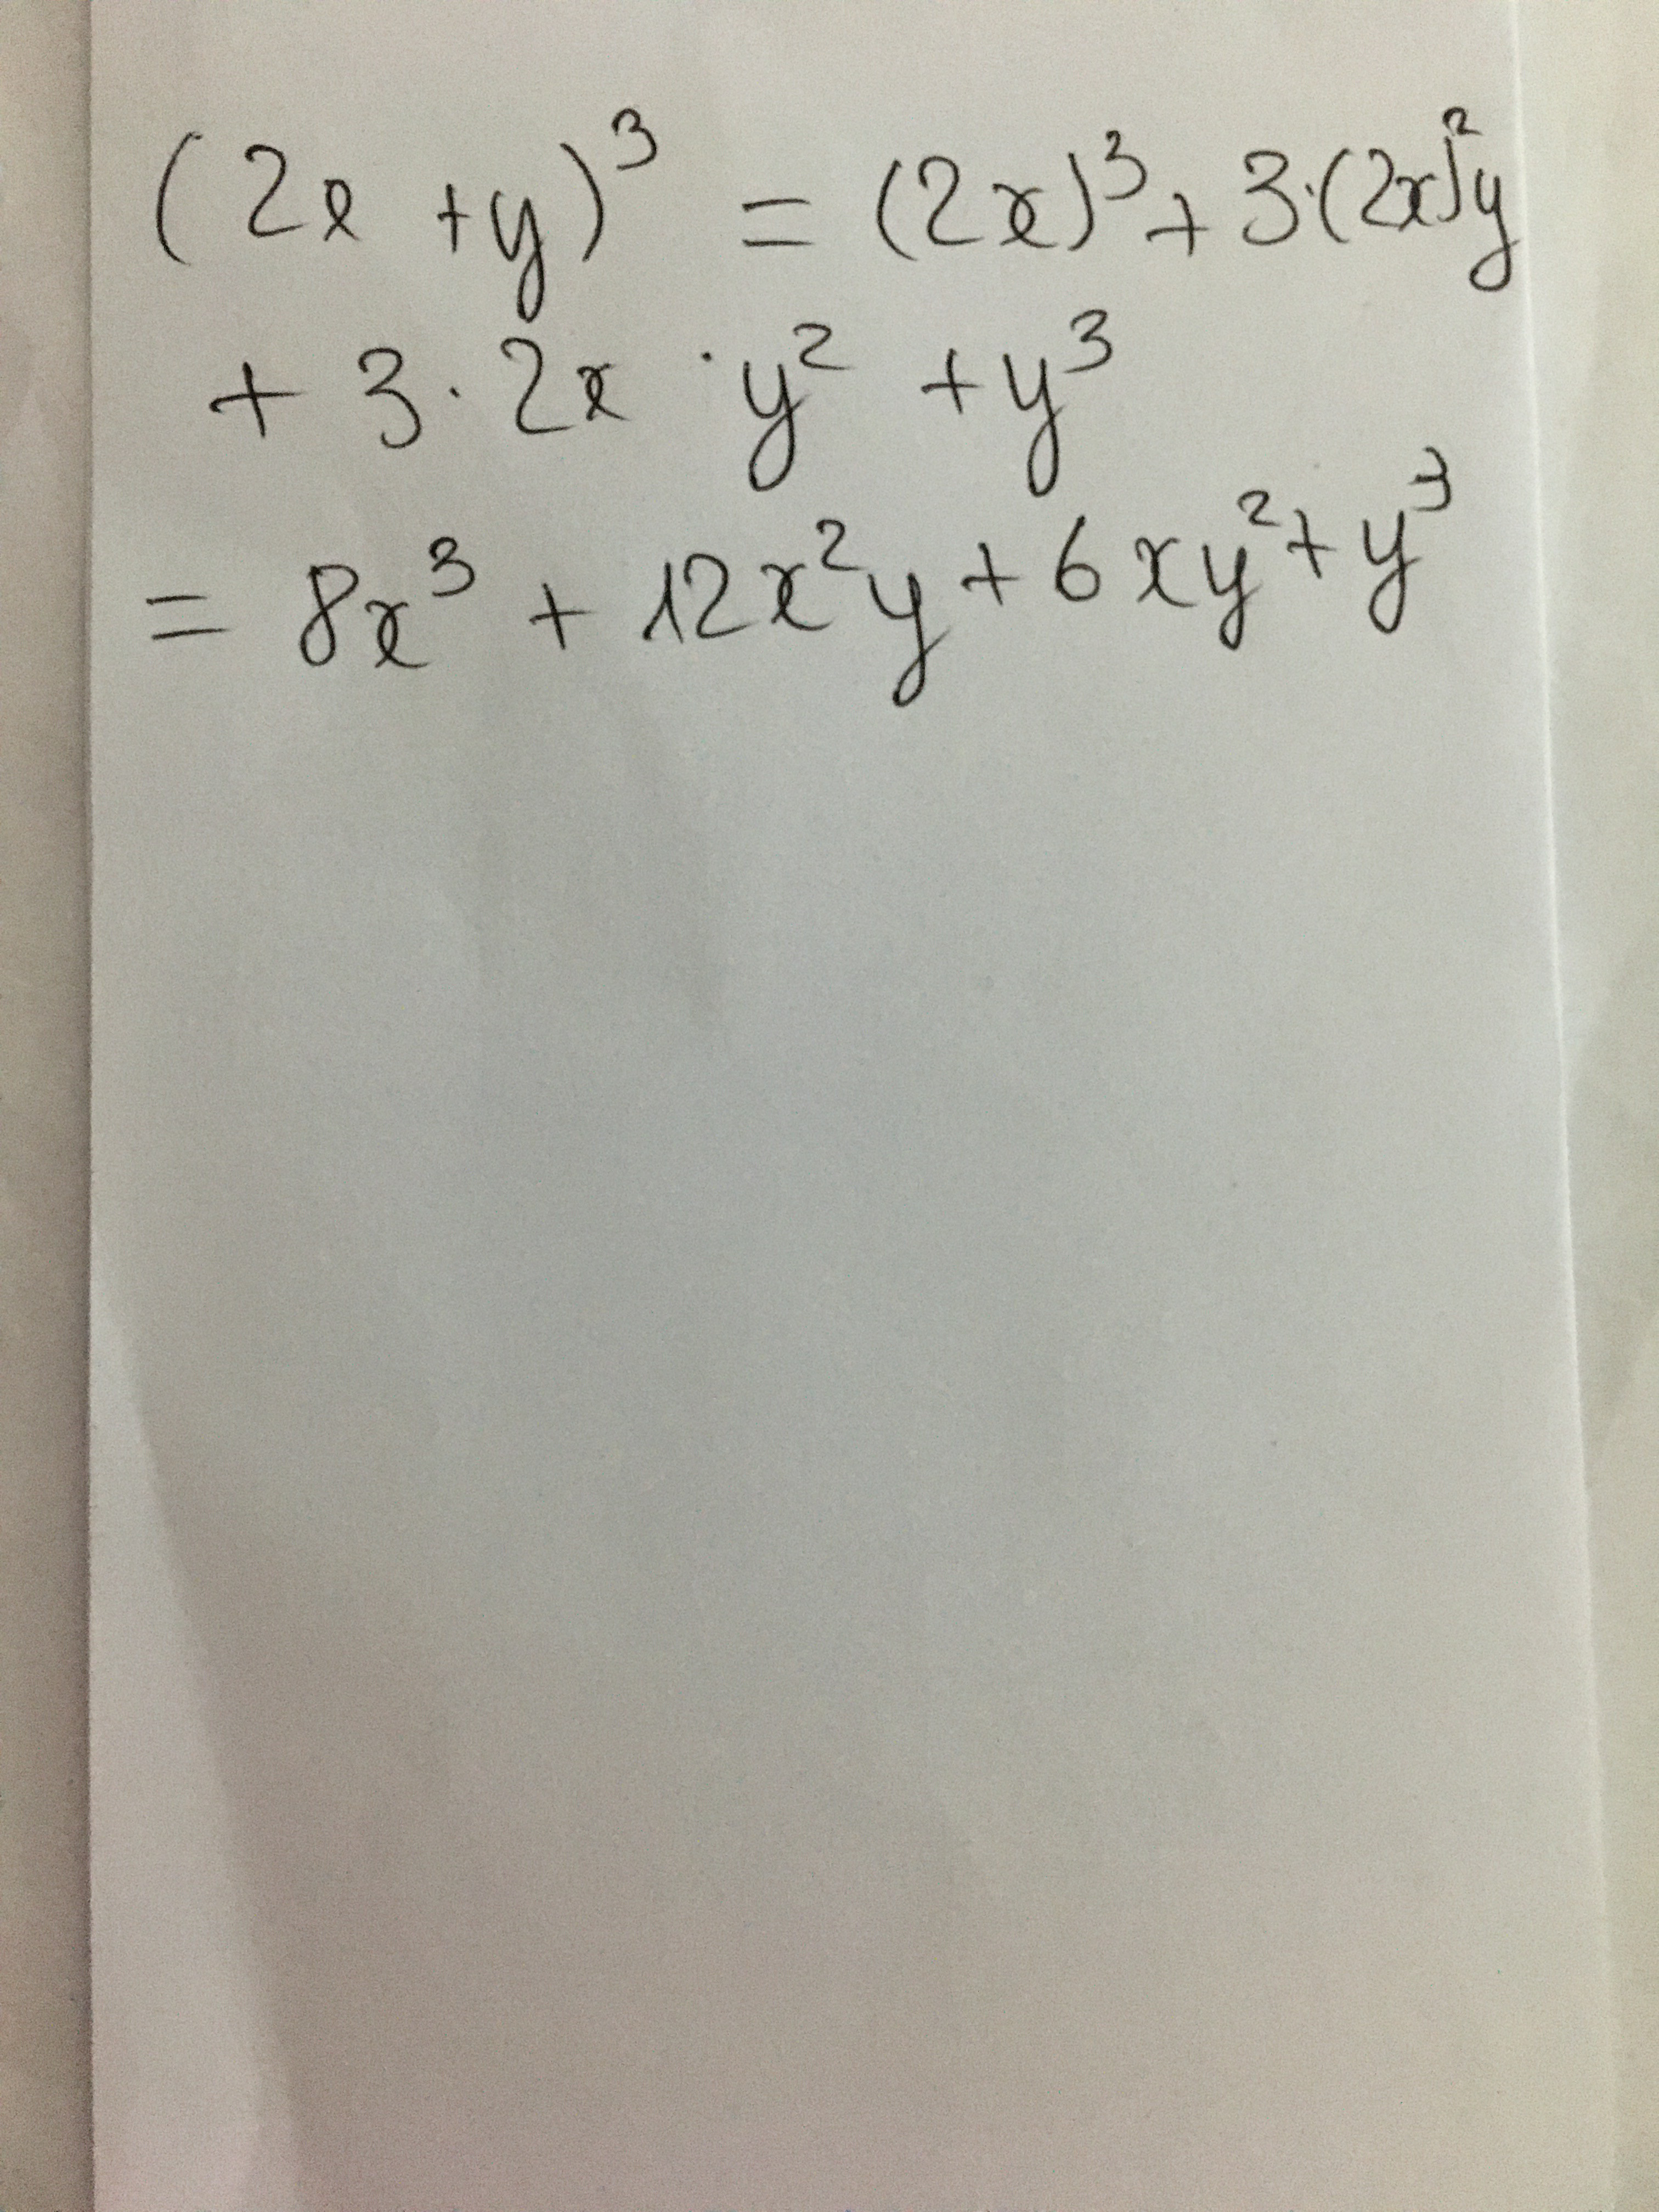 (2x + y)³ = (2x)³ + 3·(2x)²y
+ 3 · 2x · y² + y³
= 8x³ + 12x²y + 6xy² + y³